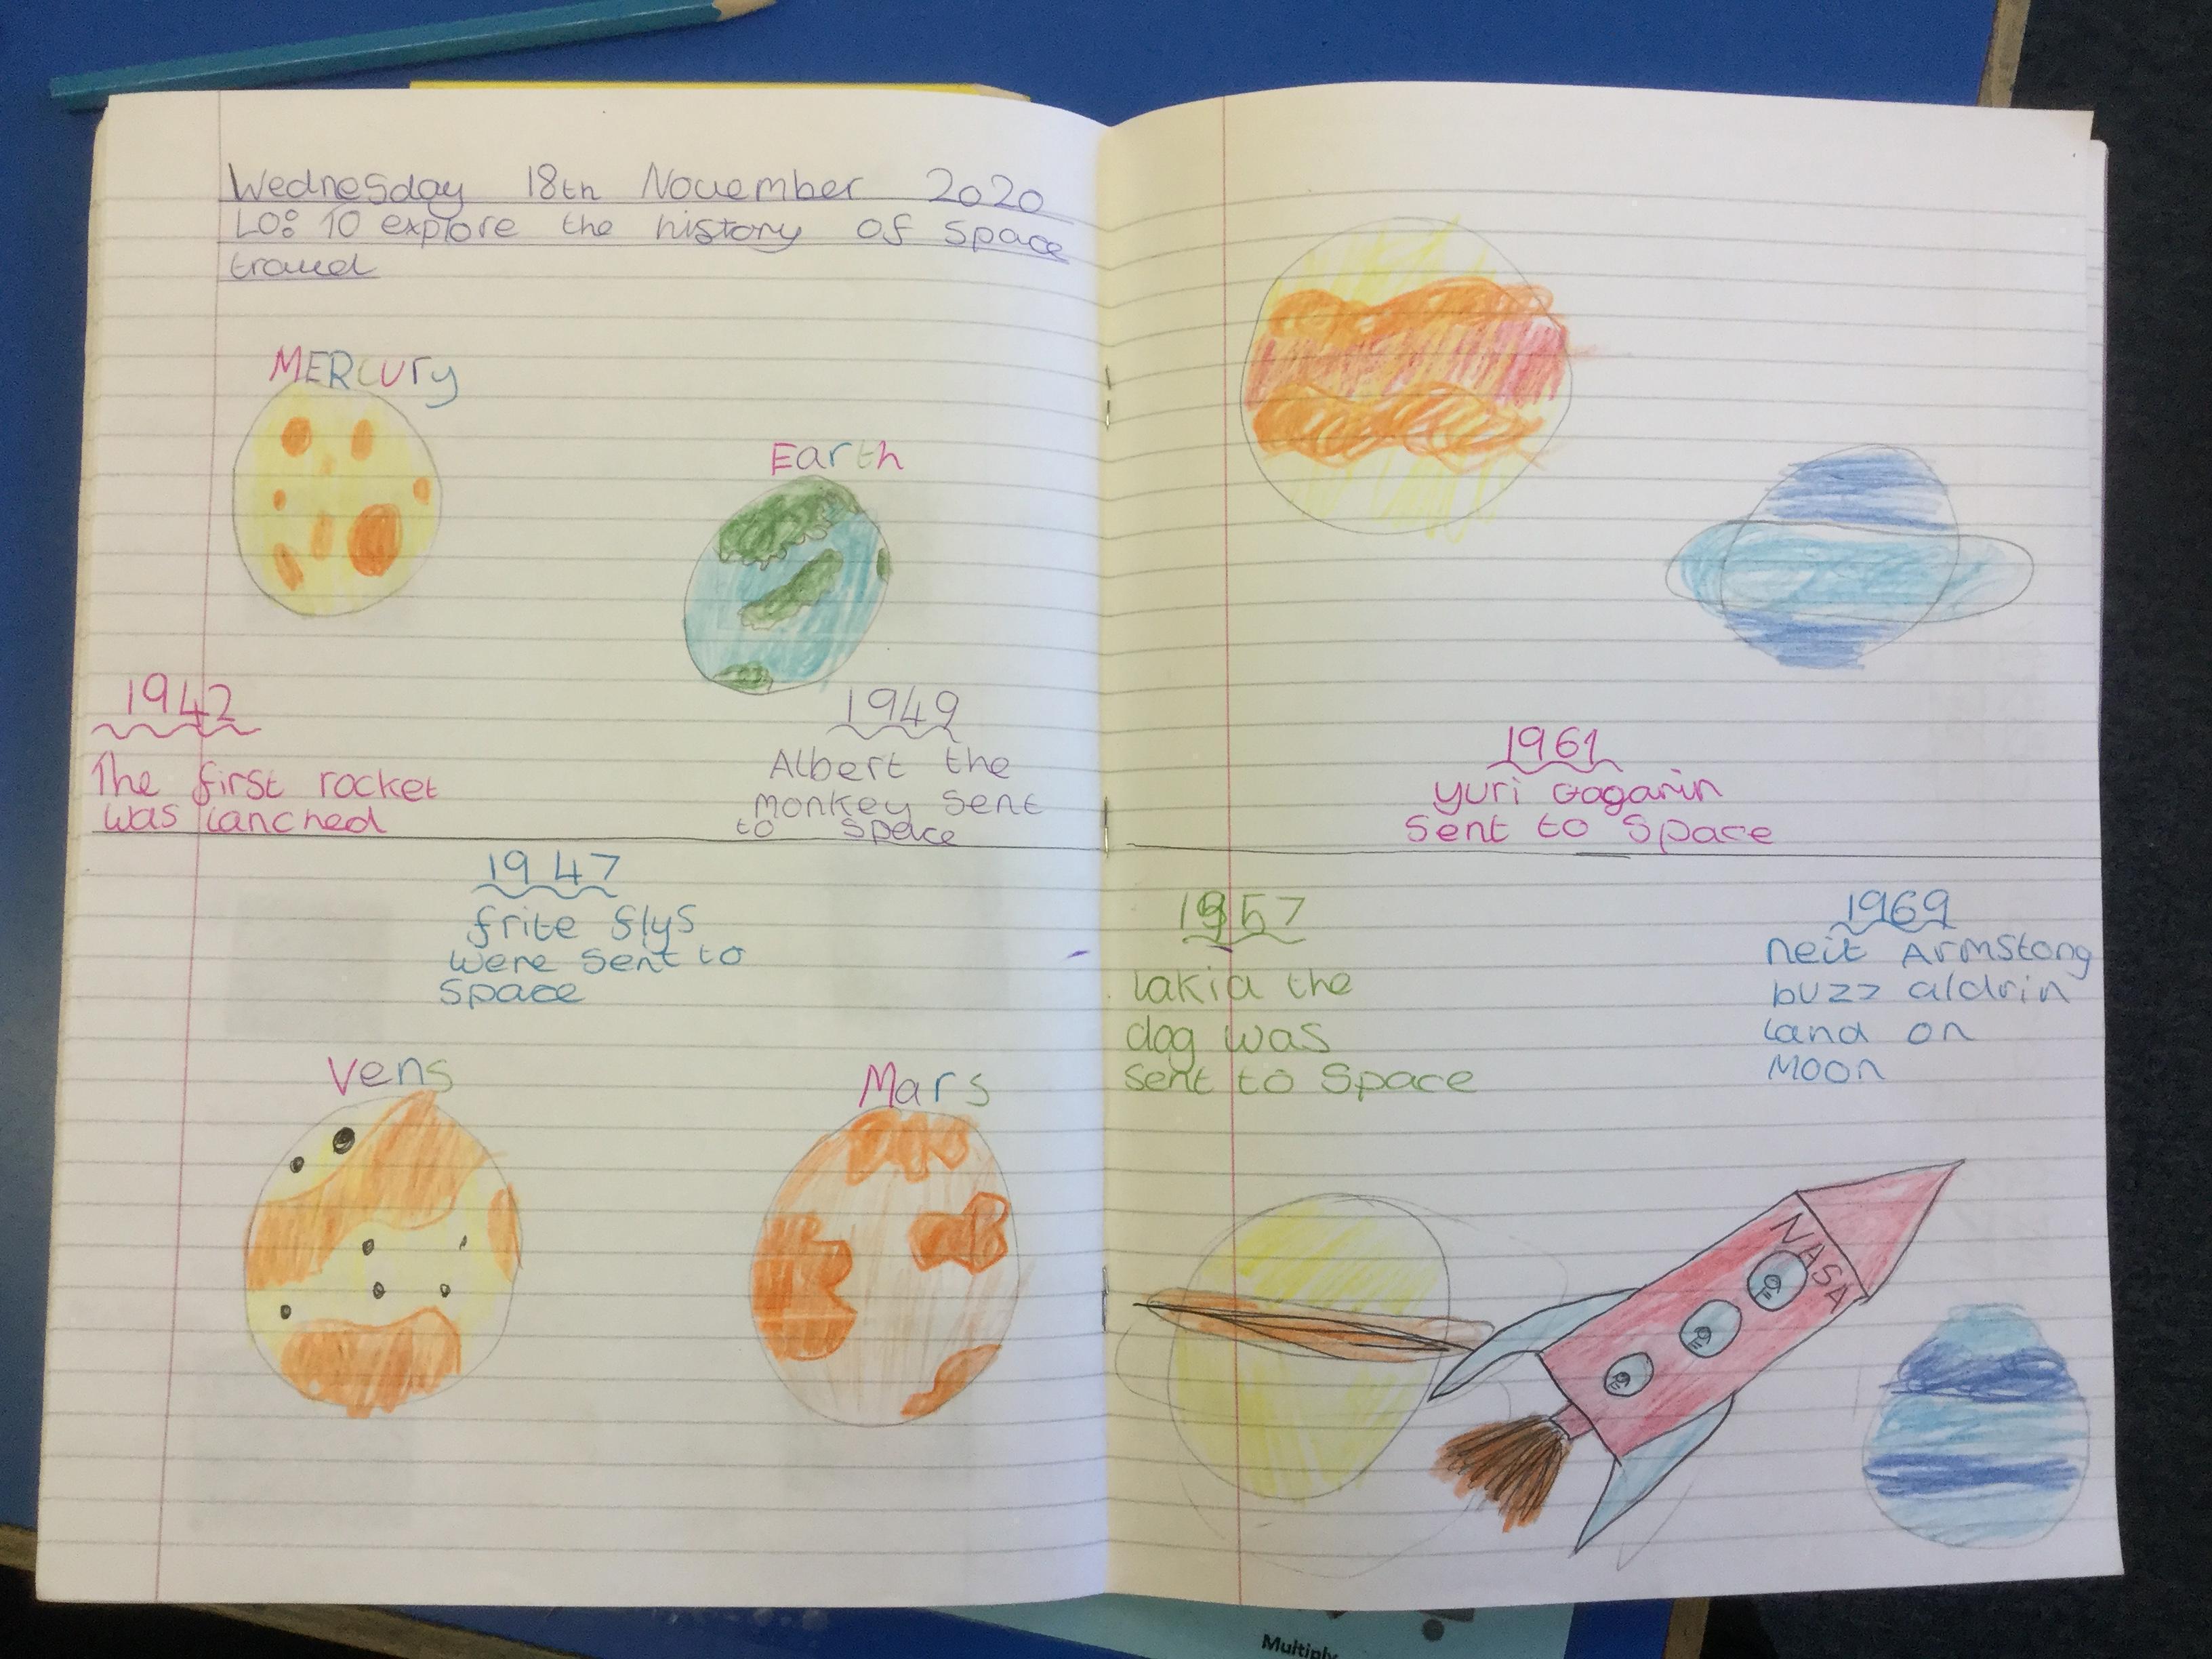 Wednesday 18th November 2020
LO: To explore the history of space
travel
MERCUry
Earth
1942
The first rocket
was lanched
1949
Albert the
monkey sent
to space
1947
frite flys
were sent to
space
Vens
Mars
1961
yuri Gagarin
sent to space
1957
lakia the
dog was
sent to space
1969
neil Armstong
buzz aldrin
land on
moon
NASA
Multiply